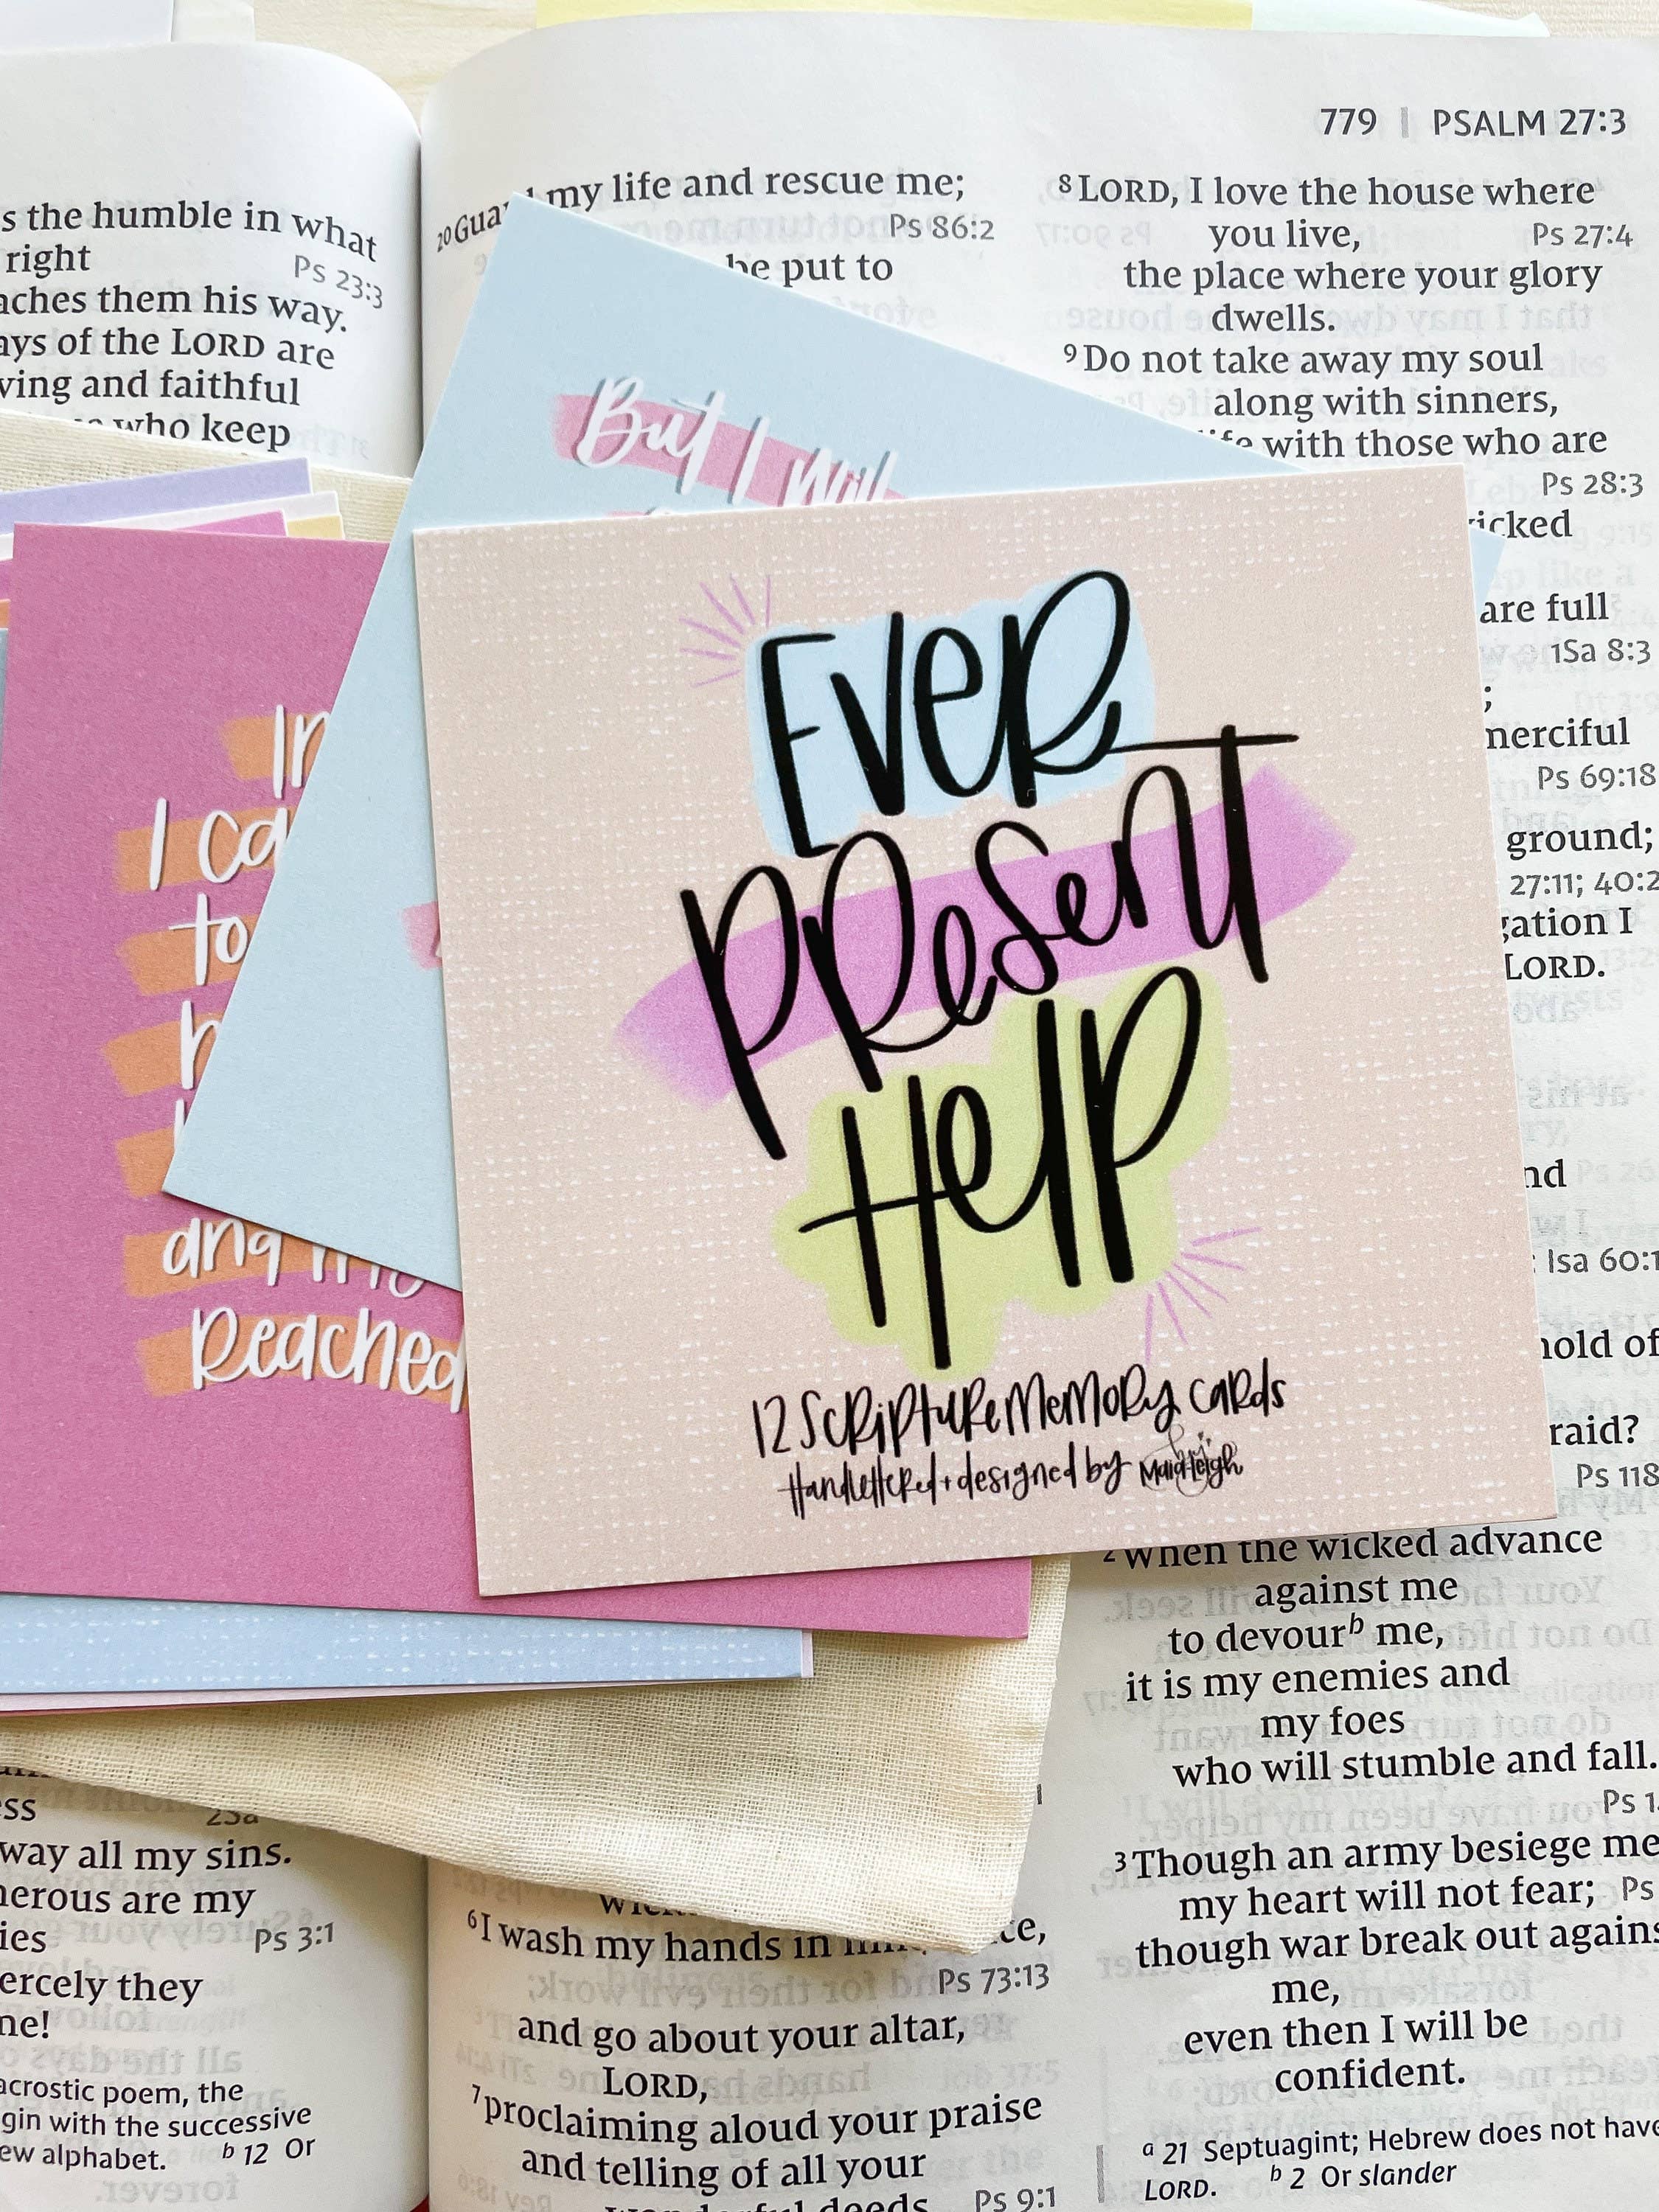 779 | PSALM 27:3
s the humble in what
right
Ps 23:3
aches them his way.
ays of the LORD are
ving and faithful
who keep
20 Gua
my life and rescue me;
Ps 86:2
be put to
8 LORD, I love the house where
you live,
Ps 27:4
the place where your glory
dwells.
9 Do not take away my soul
along with sinners,
with those who are
Ps 28:3
icked
are full
1Sa 8:3
;
merciful
Ps 69:18
ground;
27:11; 40:2
gation I
LORD.
nd
Isa 60:1
hold of
raid?
Ps 118
But I will
In
I ca
to
h
and my
Reached
EVER
PRESENT
HELP
12 SCRIPTURE MEMORY CARDS
Handlettered + designed by MaidLeigh
2 When the wicked advance
against me
to devour b me,
it is my enemies and
my foes
who will stumble and fall.
Ps 1
3 Though an army besiege me
my heart will not fear; Ps
though war break out agains
me,
even then I will be
confident.
a 21 Septuagint; Hebrew does not have
LORD. b 2 Or slander
ss
25a
way all my sins.
nerous are my
ies
Ps 3:1
ercely they
ne!
acrostic poem, the
gin with the successive
ew alphabet. b 12 Or
6 I wash my hands in
ce,
Ps 73:13
and go about your altar,
LORD,
7 proclaiming aloud your praise
and telling of all your
deeds
Ps 9:1